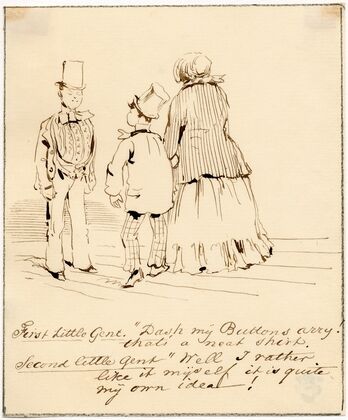 First Little Gent. "Dash my Buttons arry!
that's a neat shirt.
Second little Gent "Well I rather
like it myself it is quite
my own idea!